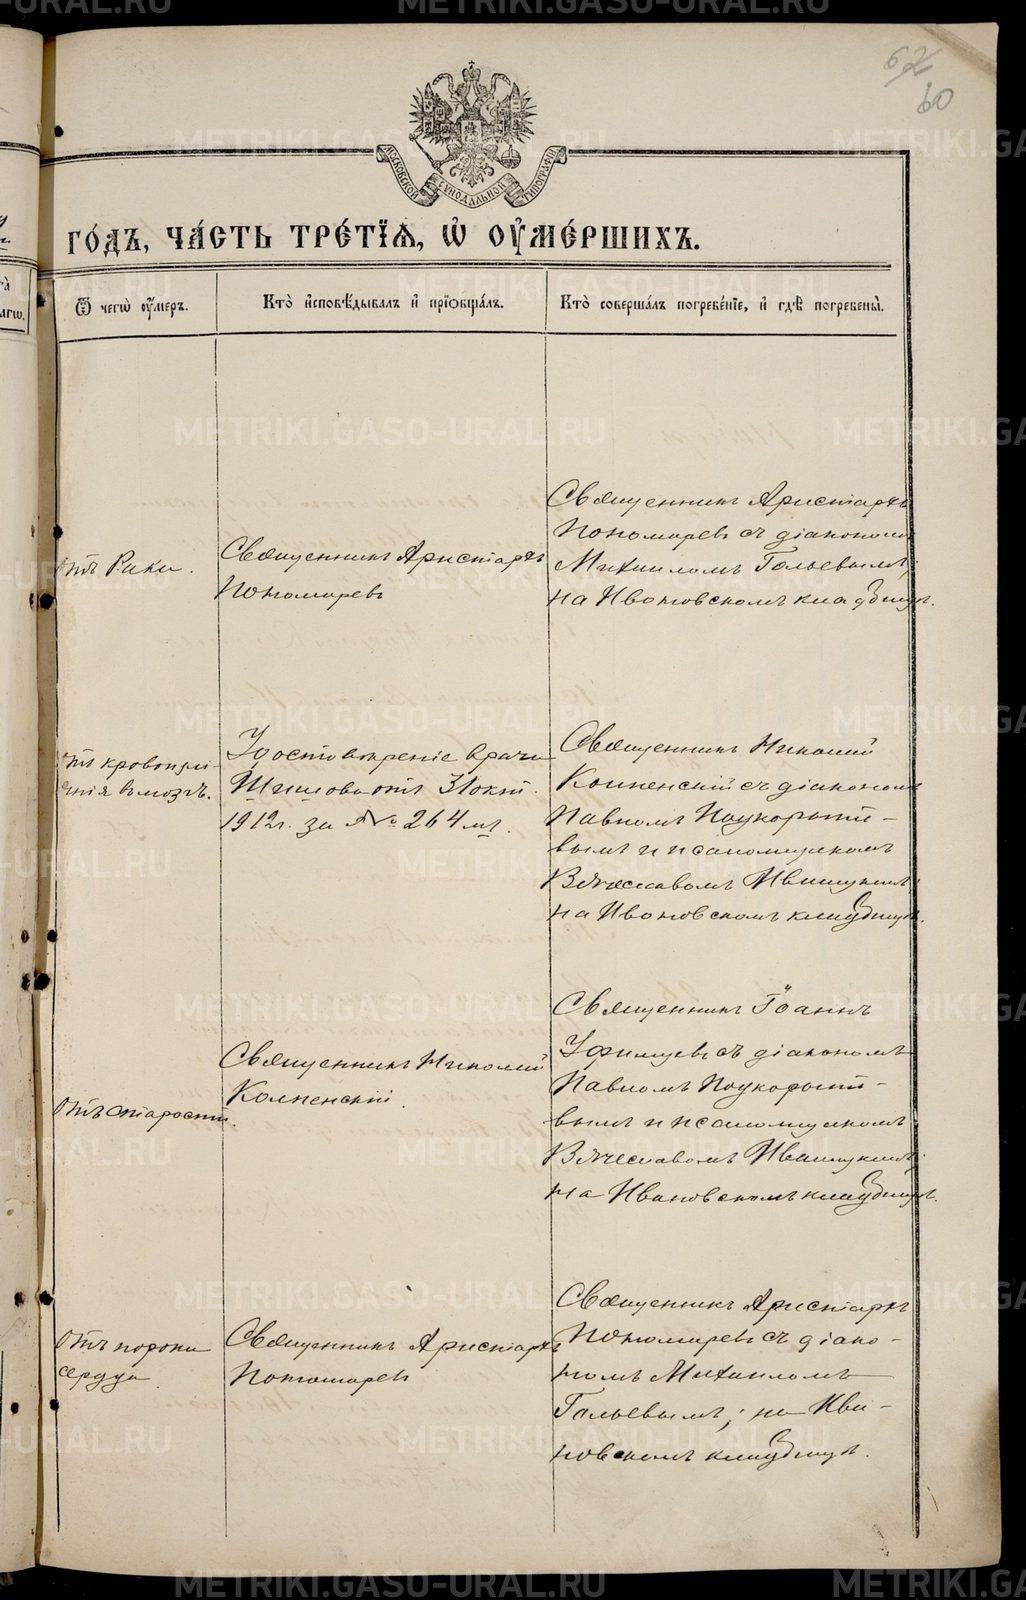 62
60
МОСКОВСКОЙ СѴНОДАЛЬНОЙ ТИПОГРАФІИ
го́дъ, ча́сть тре́тїѧ, ѡ҆ оу҆ме́ршихъ.
Ѿ чегѡ̀ оу҆́меръ.
Кто̀ и҆сповѣ́дывалъ и҆ прїѡбща́лъ.
Кто̀ соверша́лъ погребе́нїе, и҆ гдѣ̀ погребены̀.
отъ Рака.
Священникъ Аристархъ
Пономаревъ
Священникъ Аристархъ
Пономаревъ съ діакономъ
Михаиломъ Гольевымъ;
на Ивановскомъ кладбищѣ.
отъ кровоизлі-
янія въ мозгъ.
Удостовѣреніе врача
Шишова отъ 31 окт.
1912 г. за № 264 мъ.
Священникъ Николай
Колпенскій съ діакономъ
Павломъ Поукоропт-
вымъ и псаломщикомъ
Вячеславомъ Ившукинымъ;
на Ивановскомъ кладбищѣ.
отъ старости.
Священникъ Николай
Колпенскій.
Священникъ Іоаннъ
Уфимцевъ съ діакономъ
Павломъ
вымъ и псаломщикомъ
Вячеславомъ
на Ивановскомъ кладбищѣ.
отъ порока
сердца.
Священникъ Аристархъ
Пономаревъ
Священникъ Аристархъ
Пономаревъ съ діако-
номъ Михаиломъ
Гольевымъ; на Ива-
новскомъ кладбищѣ.
METRIKI.GASO-URAL.RU